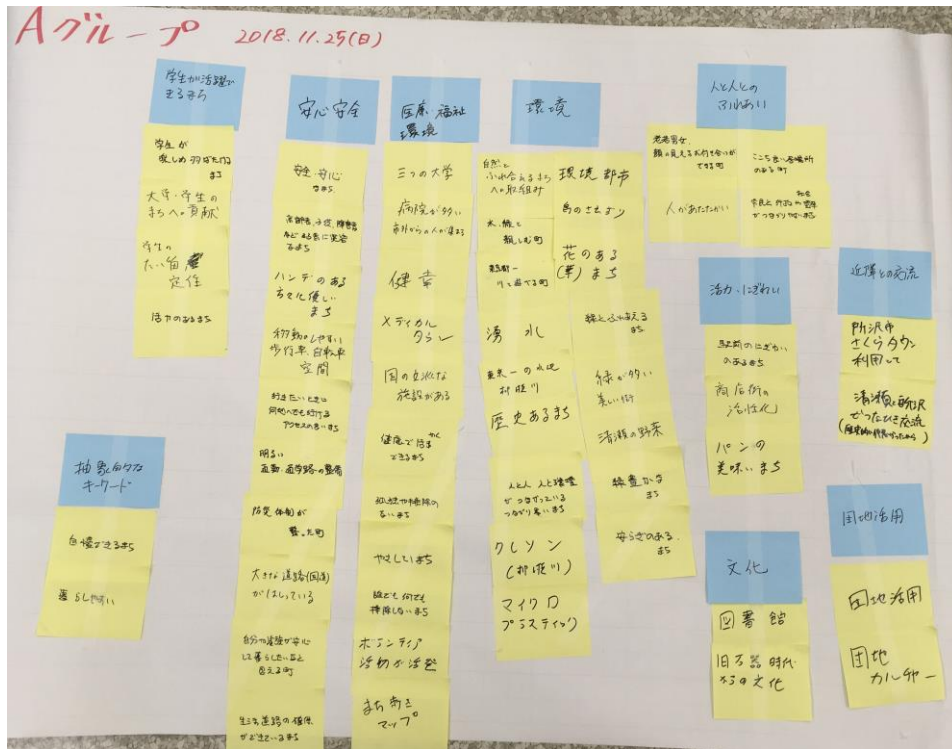 Aグループ 2018.11.25(日)
学生が活躍で
きるまち
学生が
楽しめ羽ばたける
まち
大学・学生の
まちへの貢献
学生の
定住
活力のあるまち
抽象的な
キーワード
自慢できるまち
暮らしやすい
安心安全
安全・安心
なまち
ハンデのある
方々に優しい
まち
移動しやすい
歩行車、自転車
空間
行きたいときに
何処へでも行ける
アクセスの良いまち
明るい
通勤・通学路の整備
防災体制が
整った町
大きな道路(国道)
がはしっている
自分や家族が安心
して暮らしたいなと
思える町
生活道路の確保
ができているまち
医療・福祉
環境
三つの大学
病院が多い
市外からの人が集まる
健幸
メディカル
タウン
国の立派な
施設がある
健康で活躍
できるまち
孤独や排除の
ないまち
やさしいまち
誰でも何でも
排除しないまち
ボランティア
活動が活発
まち歩き
マップ
環境
自然と
ふれ合えるまち
への取組み
水、緑と
親しむ町
湧水
東京一の水辺
柳瀬川
歴史あるまち
人と人、人と環境
がつながっている
つながり長いまち
クレソン
(柳瀬川)
マイクロ
プラスティック
環境都市
鳥のさえずり
花のある
(華)まち
緑とふれあえる
まち
緑が多い
美しい街
清瀬の野菜
緑豊かな
まち
安らぎのある
まち
人と人との
ふれあい
老若男女、
顔の見えるお付き合いが
できる町
ここち良い居場所
のある町
人があたたかい
活力・にぎわい
駅前のにぎわい
のあるまち
商店街の
活性化
パンの
美味いまち
文化
図書館
旧石器時代
からの文化
近隣との交流
所沢市
さくらタウン
利用して
清瀬と所沢
団地活用
団地活用
団地
カルチャー